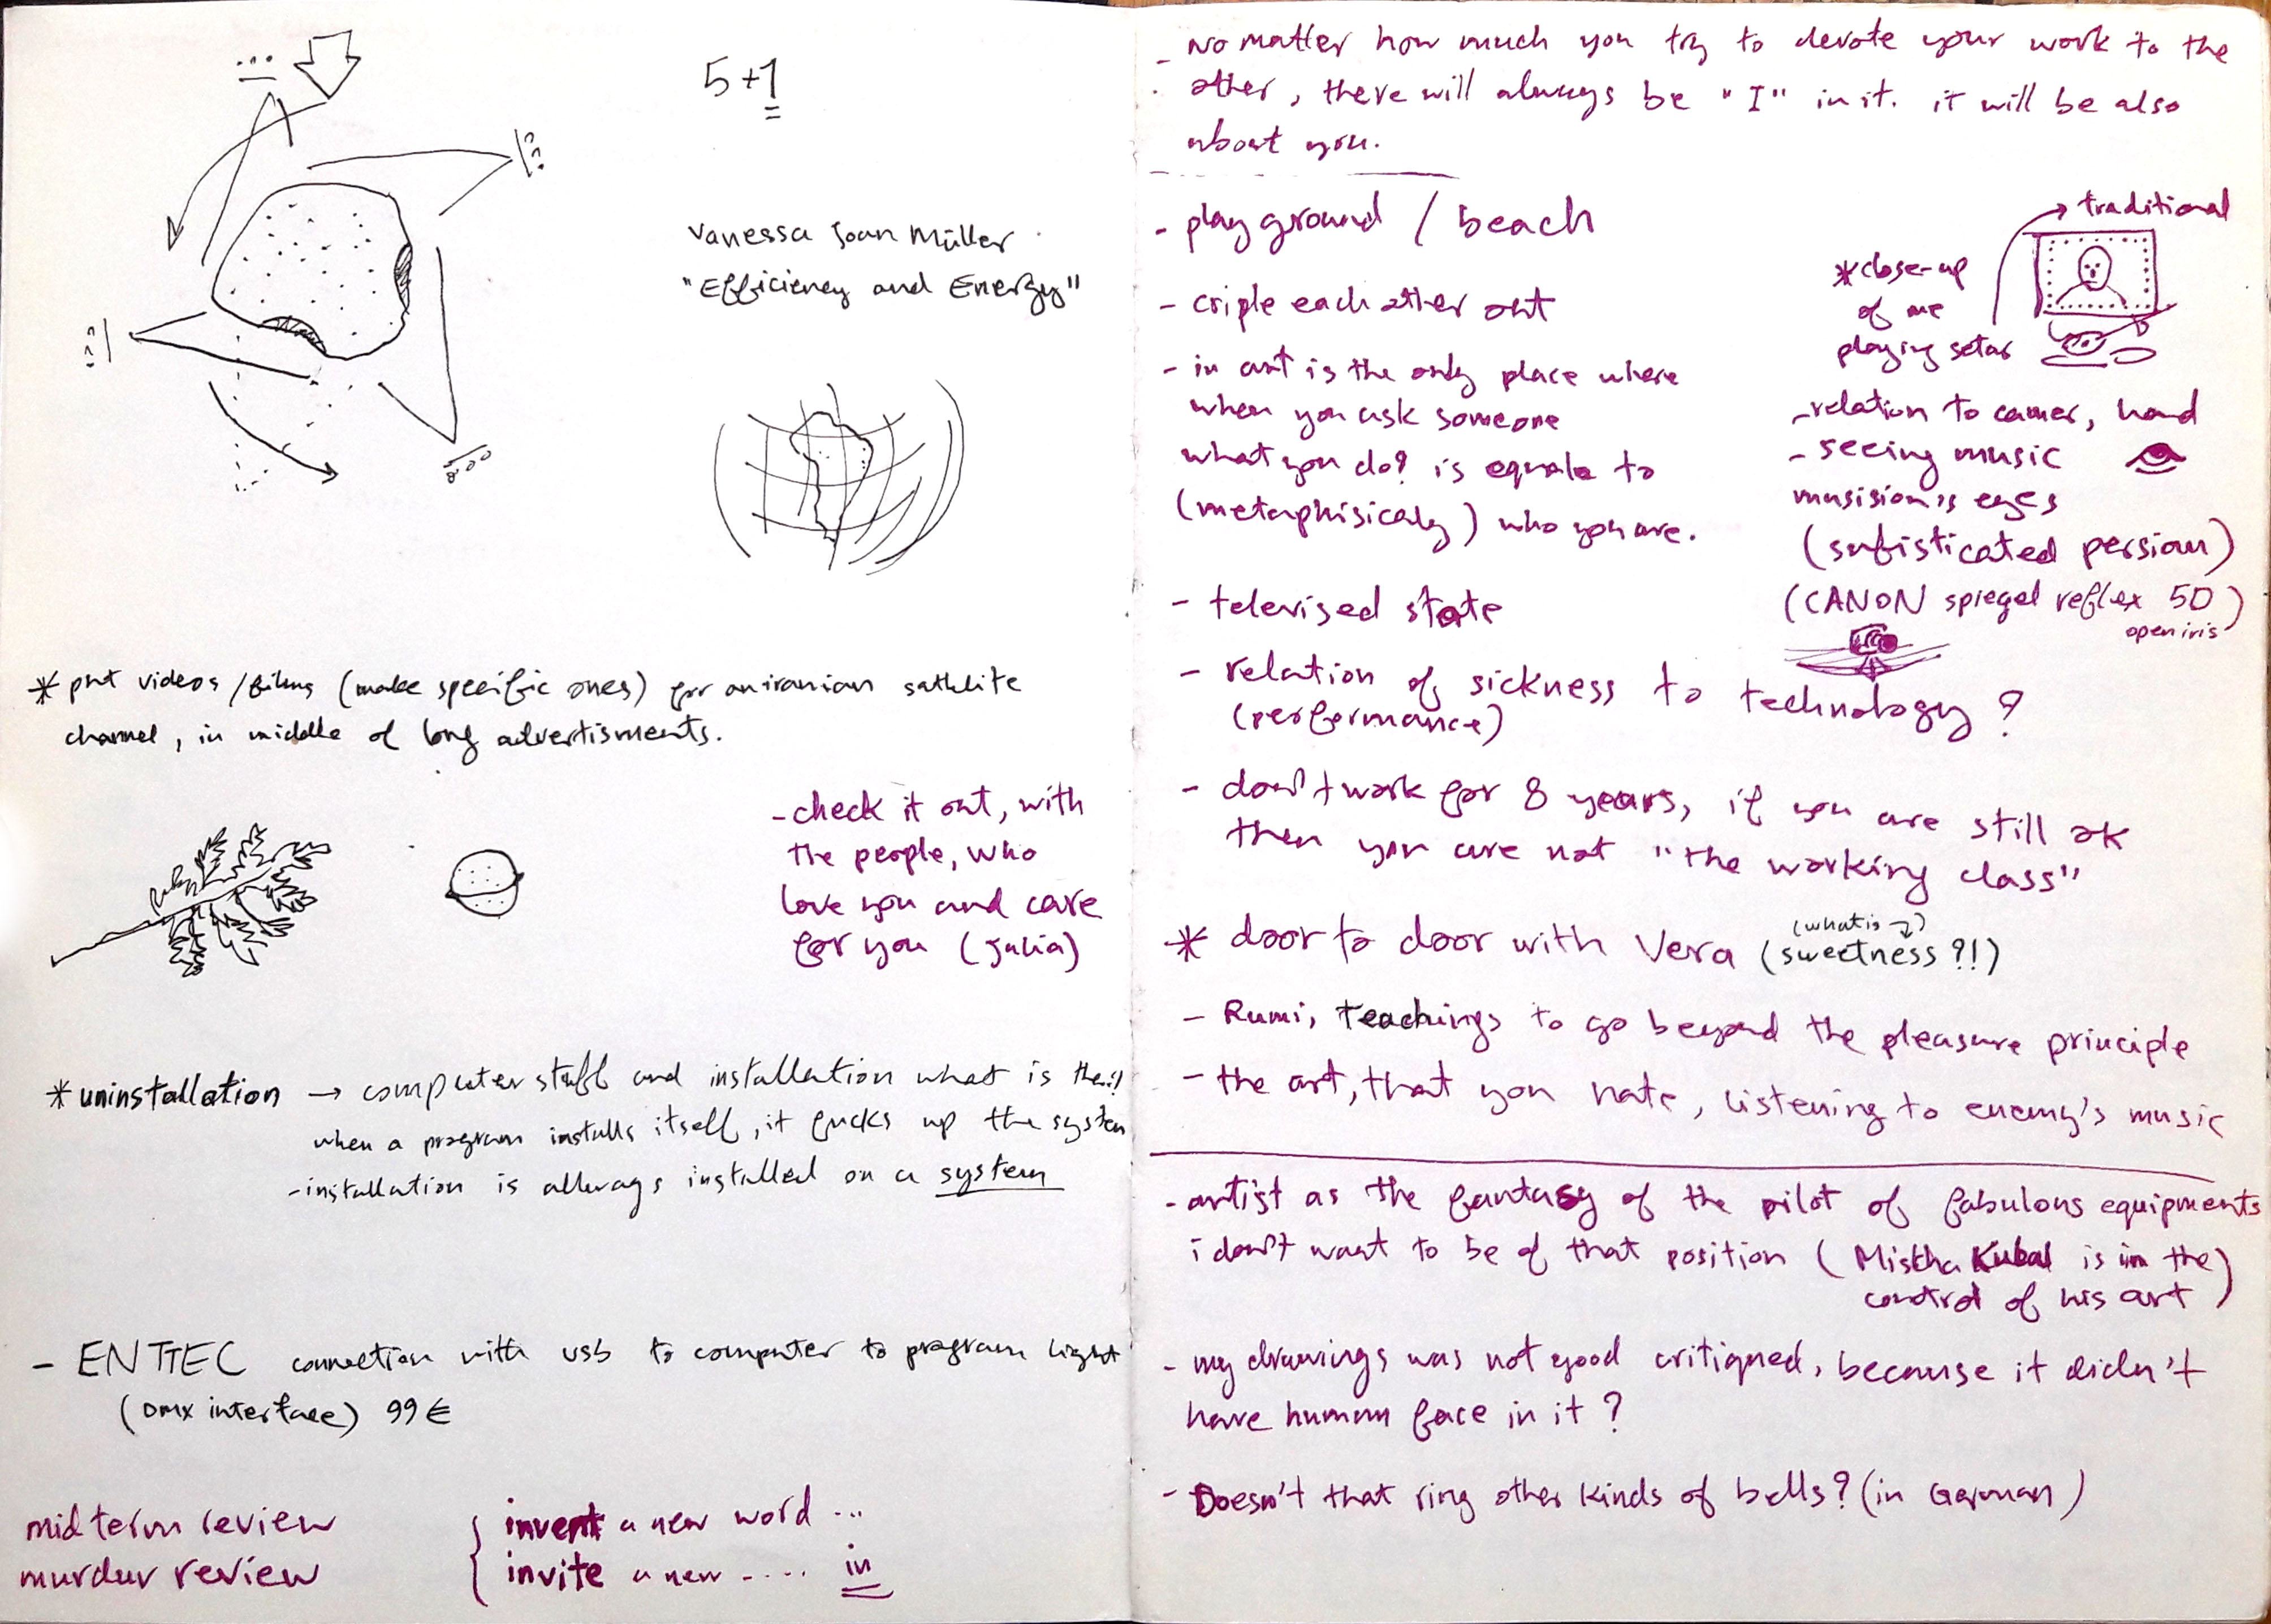 5+1
Vanessa Joan Müller
"Efficiency and Energy"
* put videos / films (make specific ones) for an iranian sathlite
channel, in middle of long advertisments.
- check it out, with
the people, who
love you and care
for you (Julia)
* uninstallation → computer stuff and installation what is the
when a program installs itself, it fucks up the system
- installation is allways installed on a system
- ENTTEC connection with usb to computer to program light
(DMX interface) 99 €
midterm review
murdur review
invent a new word ...
invite a new - .... in
- no matter how much you try to devote your work to the
other, there will always be "I" in it. it will be also
about you.
- playground / beach
- criple each other out
- in art is the only place where
when you ask someone
what you do? is equale to
(metaphisicaly) who you are.
→ traditional
* close-up
of me
playing setar
- relation to camer, hand
- seeing music
musision's eyes
(sufisticated persian)
(CANON spiegel reflex 5D)
open iris
- televised state
- relation of sickness to technology?
(performance)
- don't work for 8 years, if you are still ok
then you are not "the working class"
(what is ↴)
* door to door with Vera (sweetness ?!)
- Rumi, teachings to go beyond the pleasure principle
- the art, that you hate, listening to enemy's music
- artist as the fantasy of the pilot of fabulous equipments
i don't want to be of that position (Mischa Kubal is in the
control of his art)
- my drawings was not good critiqued, because it didn't
have human face in it?
- Doesn't that ring other kinds of bells? (in German)